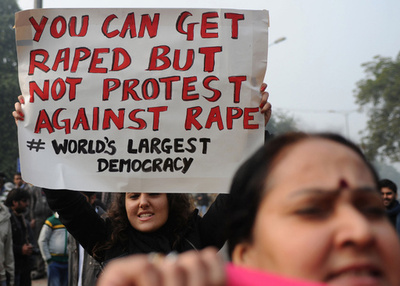 YOU CAN GET
RAPED BUT
NOT PROTEST
AGAINST RAPE
# WORLD'S LARGEST
DEMOCRACY